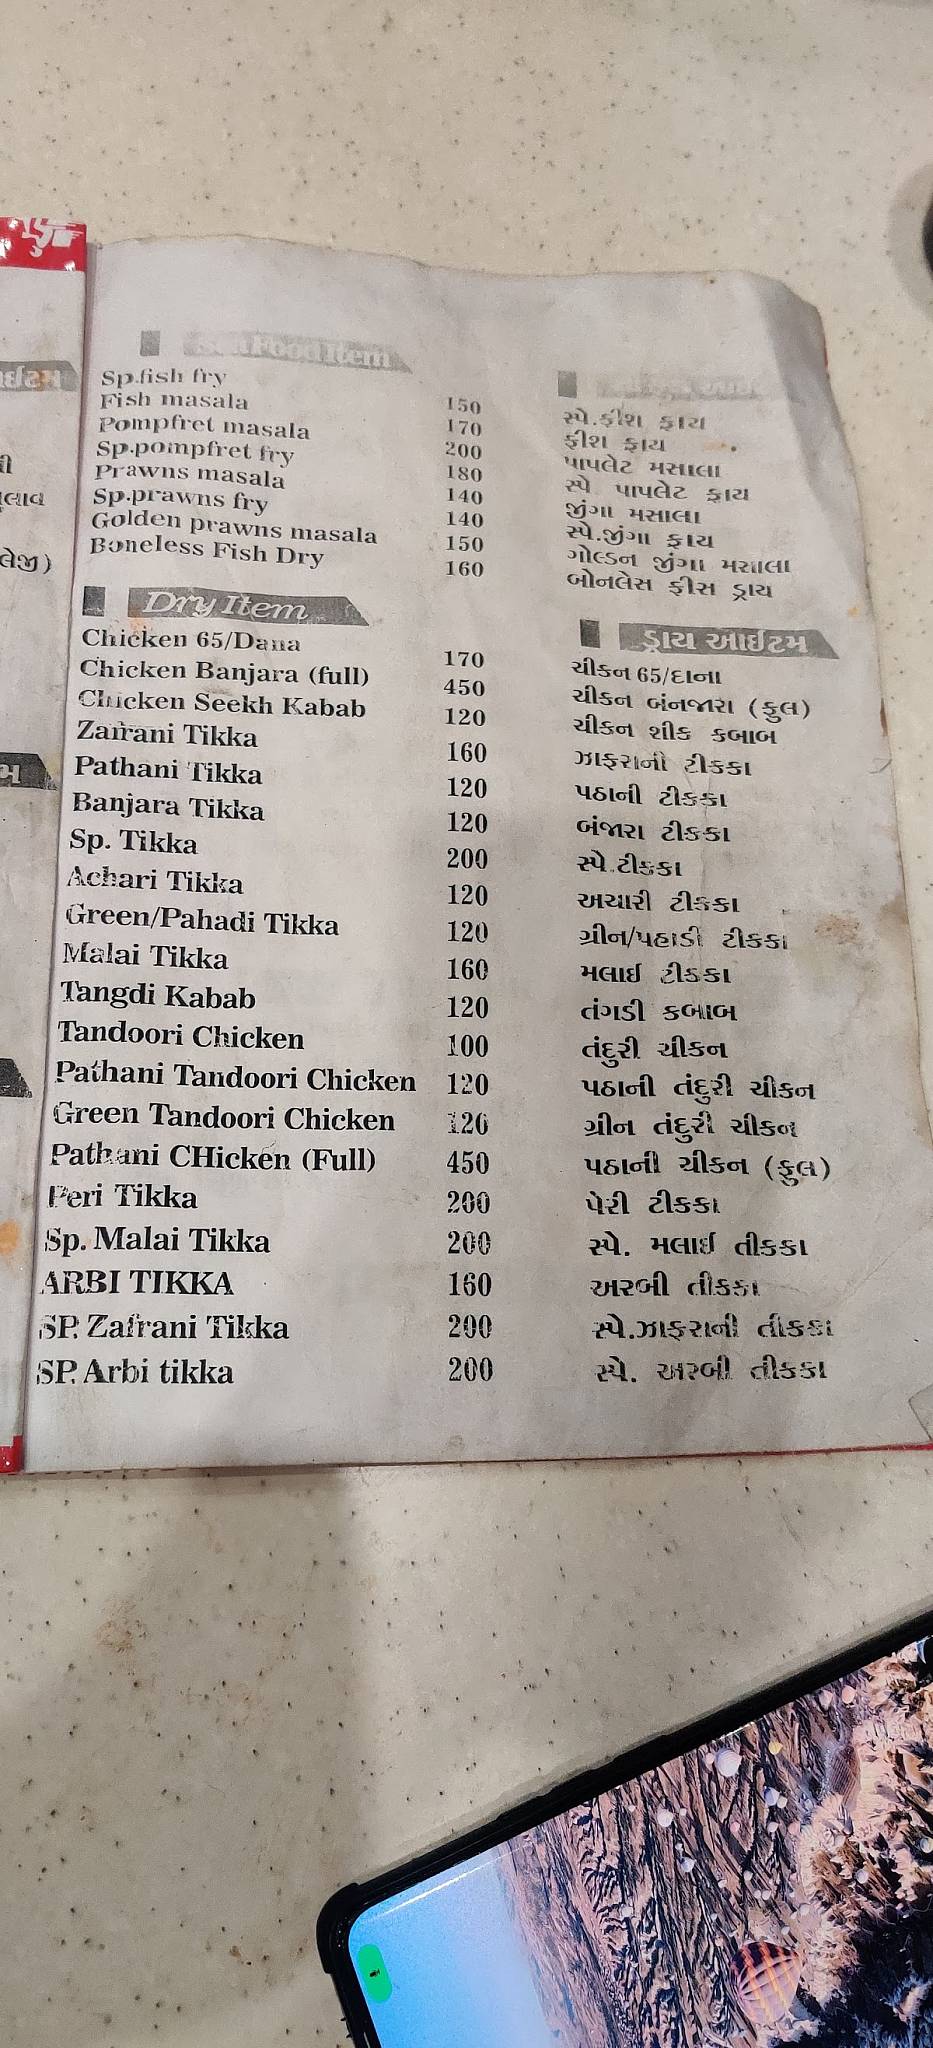 Food Item
Sp.fish fry 150 સ્પે.ફીશ ફ્રાય
Fish masala 170 ફીશ ફ્રાય
Pompfret masala 200 પાપલેટ મસાલા
Sp.pompfret fry 180 સ્પે પાપલેટ ફ્રાય
Prawns masala 140 જીંગા મસાલા
Sp.prawns fry 140 સ્પે.જીંગા ફ્રાય
Golden prawns masala 150 ગોલ્ડન જીંગા મસાલા
Boneless Fish Dry 160 બોનલેસ ફીસ ડ્રાય
Dry Item ડ્રાય આઈટમ
Chicken 65/Dana 170 ચીકન 65/દાના
Chicken Banjara (full) 450 ચીકન બંનજારા (ફુલ)
Chicken Seekh Kabab 120 ચીકન શીક કબાબ
Zafrani Tikka 160 ઝાફરાની ટીકકા
Pathani Tikka 120 પઠાની ટીકકા
Banjara Tikka 120 બંજારા ટીકકા
Sp. Tikka 200 સ્પે.ટીકકા
Achari Tikka 120 અચારી ટીકકા
Green/Pahadi Tikka 120 ગ્રીન/પહાડી ટીકકા
Malai Tikka 160 મલાઈ ટીકકા
Tangdi Kabab 120 તંગડી કબાબ
Tandoori Chicken 100 તંદુરી ચીકન
Pathani Tandoori Chicken 120 પઠાની તંદુરી ચીકન
Green Tandoori Chicken 120 ગ્રીન તંદુરી ચીકન
Pathani CHicken (Full) 450 પઠાની ચીકન (ફુલ)
Peri Tikka 200 પેરી ટીકકા
Sp. Malai Tikka 200 સ્પે. મલાઈ તીકકા
ARBI TIKKA 160 અરબી તીકકા
SP. Zafrani Tikka 200 સ્પે.ઝાફરાની તીકકા
SP. Arbi tikka 200 સ્પે. અરબી તીકકા